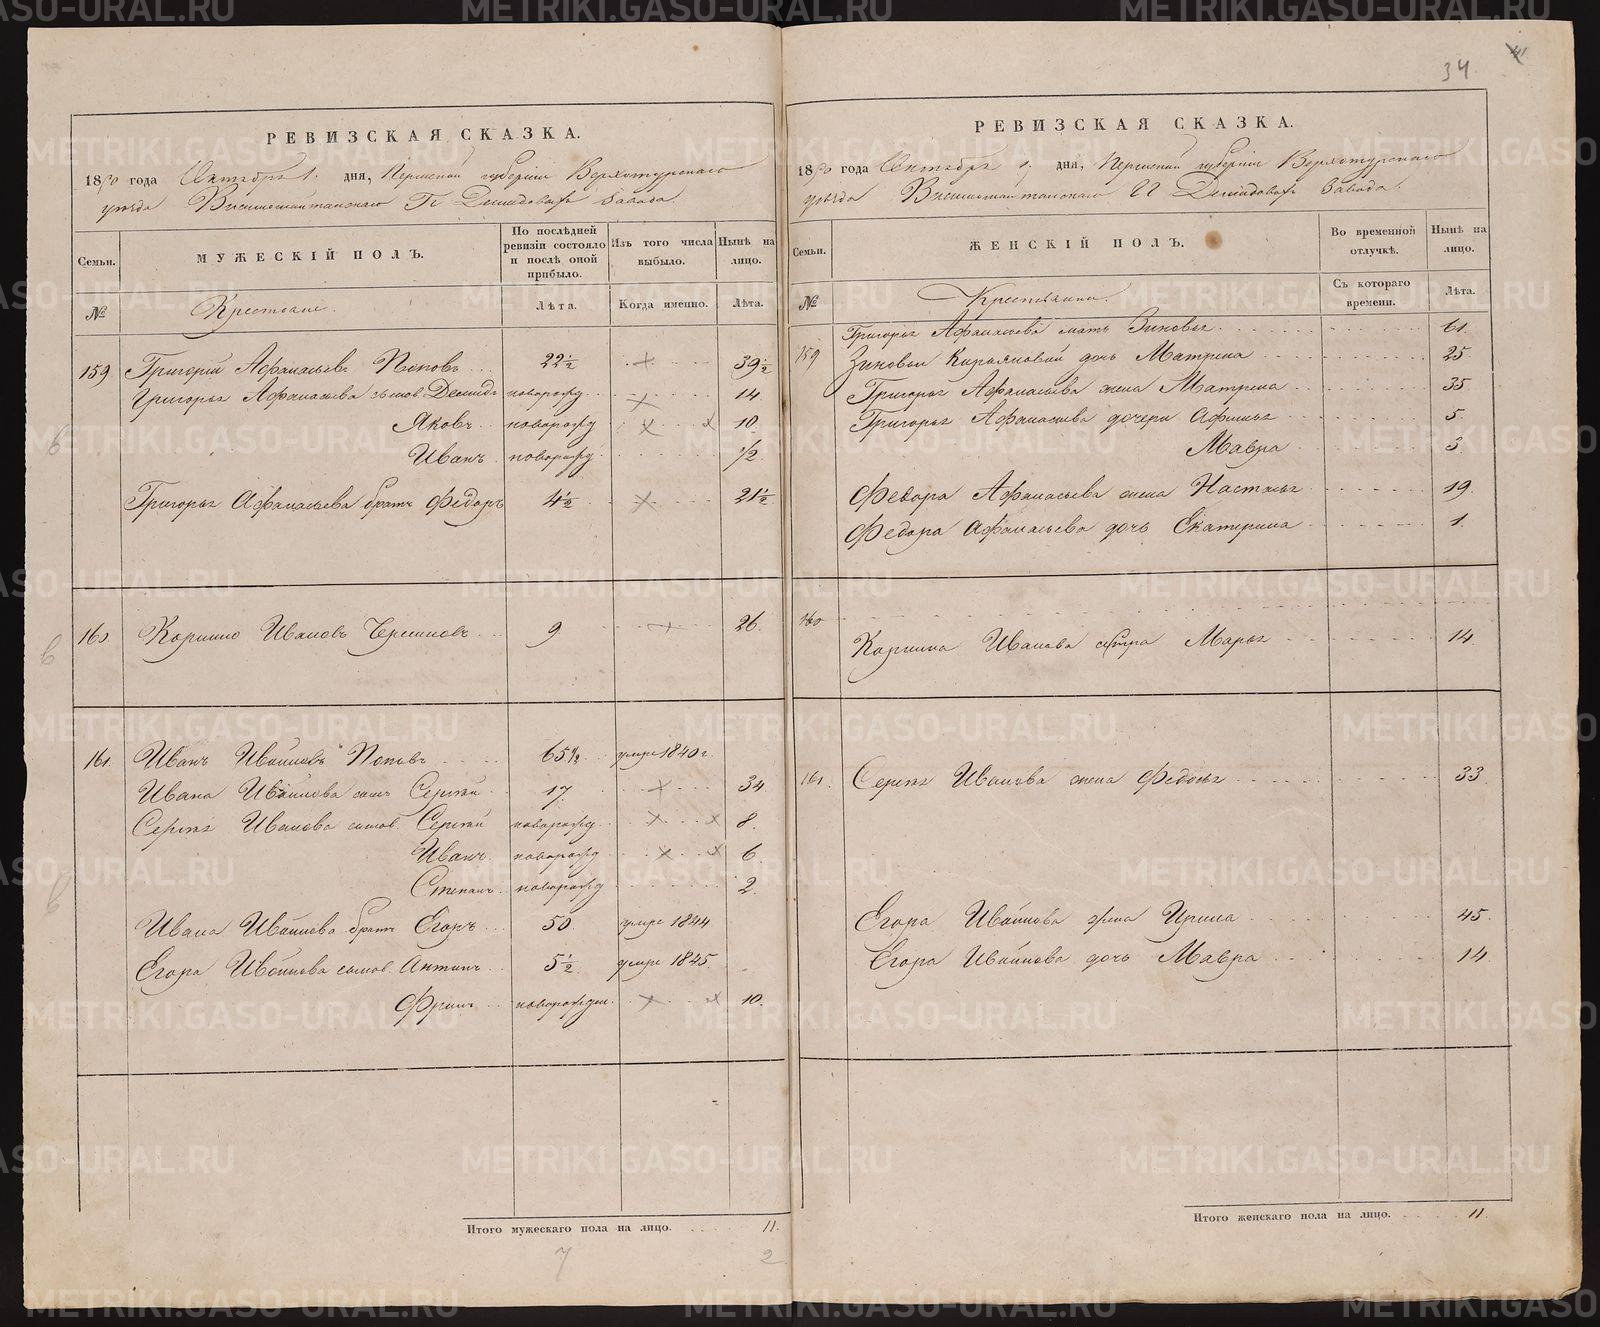 34
РЕВИЗСКАЯ СКАЗКА.
1850 года Октября 1. дня, Пермской губернiи Верхотурскаго
уѣзда Висимошайтанскаго Гг Демидовыхъ завода.
Семьи.
МУЖЕСКIЙ ПОЛЪ.
По послѣдней ревизiи состояло и послѣ оной прибыло.
Изъ того числа выбыло.
Нынѣ на лицо.
№
Крестьяне.
Лѣта.
Когда именно.
Лѣта.
159 Григорiй Афанасьевъ Поповъ 22½ 39½
Григорья Афанасьева сынов. Демидъ новорожд 14
Яковъ новорожд 10.
Иванъ новорожд. ½
Григорья Афанасьева братъ Федоръ 4½ 21½
160 Ивановъ 9 26.
161. Иванъ Поповъ 65½ умре 1840 г.
Ивана сынъ Сергѣй 17. 34
Сергѣя Иванова сынов. Сергѣй новорожд. 8.
Иванъ новорожд 6.
Степанъ новорожд 2.
Ивана братъ Егоръ 50. умре 1844
Егора сынов. Антипъ 5½ умре 1845.
новорожден. 10.
Итого мужескаго пола на лицо. 11.
7 2
РЕВИЗСКАЯ СКАЗКА.
1850 года Октября 1 дня, Пермской губернiи Верхотурскаго
уѣзда Висимошайтанскаго ГГ Демидовыхъ завода.
Семьи.
ЖЕНСКIЙ ПОЛЪ.
Во временной отлучкѣ.
Нынѣ на лицо.
№
Крестьянки.
Съ котораго времени.
Лѣта.
Григорья Афанасьева мать Зиновья 61.
159 Зиновьи дочь Матрена 25
Григорья Афанасьева жена Матрена 35
Григорья Афанасьева дочери Афимья 5.
Мавра 3
Федора Афанасьева жена Настасья 19.
Федора Афанасьева дочь Екатерина 1.
160
Иванова сестра Марья 14.
161. Сергѣя Иванова жена Федосья 33.
Егора жена Ирина 45.
Егора дочь Мавра 14.
Итого женскаго пола на лицо. 11.
METRIKI.GASO-URAL.RU